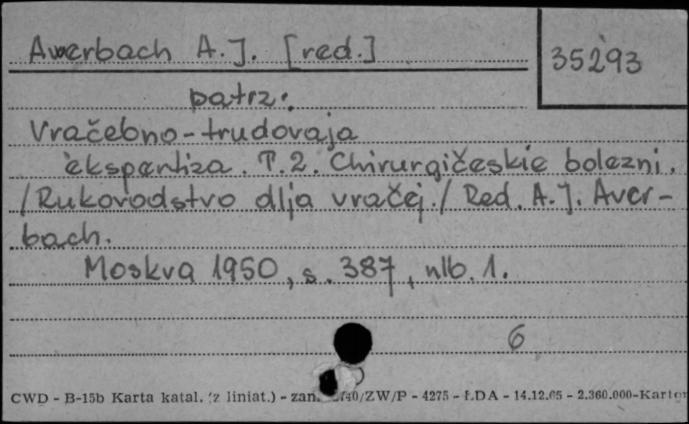 Awerbach A.J. [red.]
35293
patrz:
Vračebno-trudovaja
ekspertiza. T.2. Chirurgičeskie bolezni.
/Rukovodstvo dlja vračej./ Red. A.J. Aver-
bach.
Moskva 1950, s. 387, nlb. 1.
6
CWD - B-15b Karta katal. (z liniat.) - zam. 2740/ZW/P - 4275 - ŁDA - 14.12.65 - 2.360.000-Karton